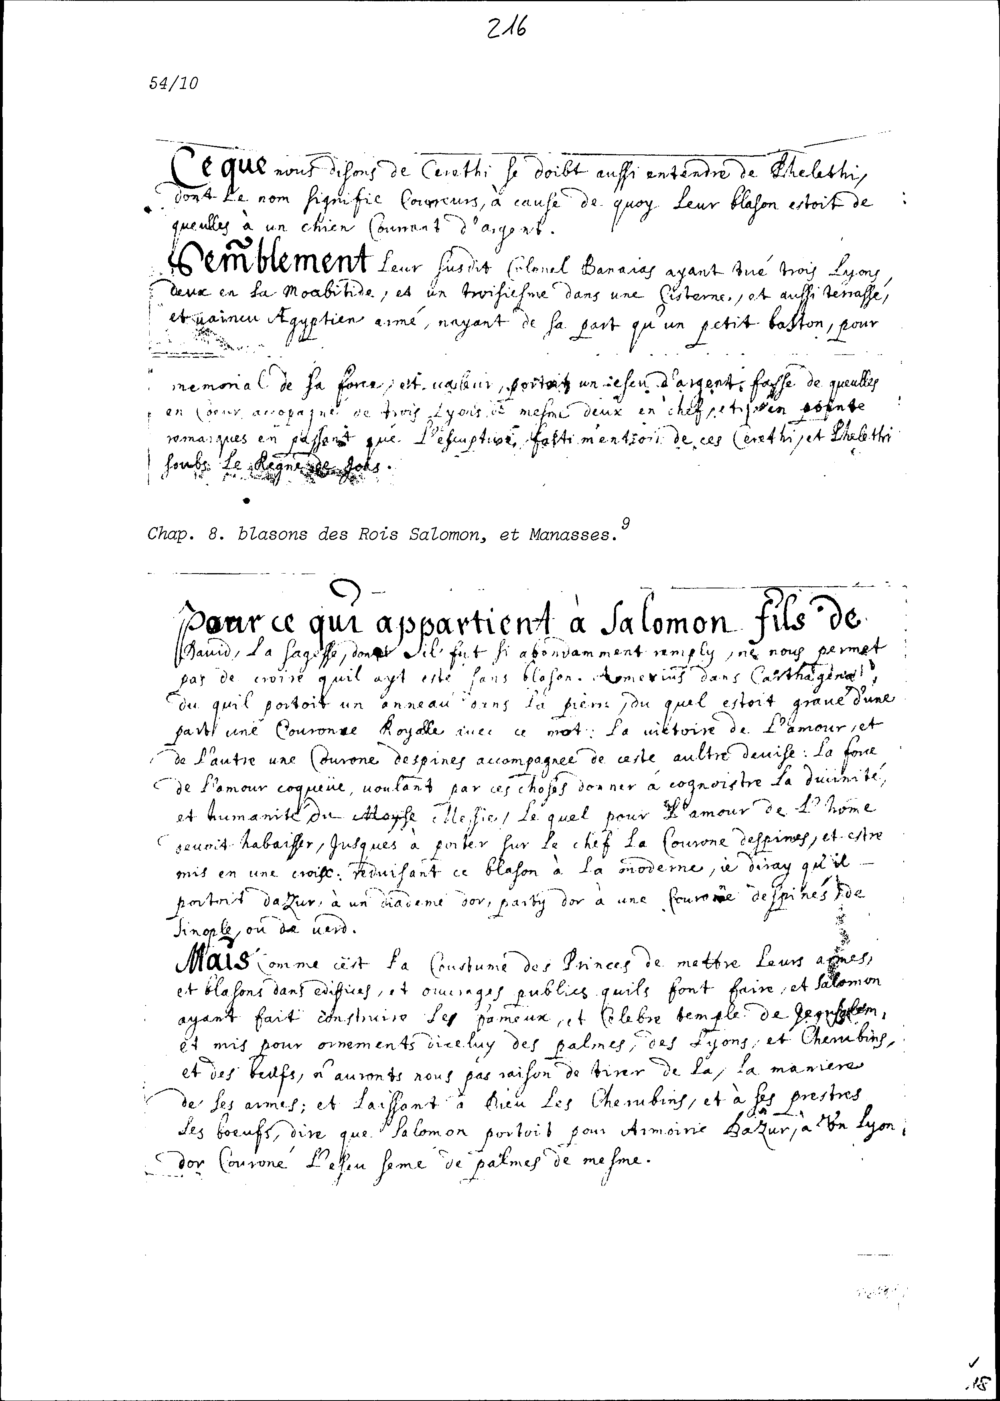 216
54/10
Ce que nous disons de Cerethi se doibt aussi entendre de Phelethi,
dont le nom signifie Coureurs, à cause de quoy leur blason estoit de
gueulles à un chien Courrant d'argent.
Semblement leur susdit Colonel Banaias ayant tué trois Lyons,
deux en la Moabitide, et un troisiesme dans une Cisterne, et aussi terrassé,
et vaincu Ægyptien armé, nayant de sa part qu'un petit baston, pour
memorial de sa force, et valeur, portoit un escu d'argent, fasse de gueulles
en Coeur accopagné de trois Lyons de mesme deux en chef, et en pointe
remarques en passant que L'escripture, fait mention de ces Cerethi, et Phelethi
soubs Le Regne de Joas.
Chap. 8. blasons des Rois Salomon, et Manasses.9
Pour ce qui appartient à Salomon fils de
David, La sagesse, dont il fut si abondamment remply, ne nous permet
pas de croire quil ayt esté sans blason. Aomerius dans Carthagena,
du quil portoit un anneau dans la pierre, du quel estoit gravé d'une
part une Couronne Royalle avec ce mot: La victoire de L'amour, et
de l'autre une Courone despines accompagnee de ceste aultre devise: La force
de l'amour cogneüe, voulant par ces choses donner à cognoistre La divinité,
et humanité du Moyse Messie, Le quel pour L'amour de L'home
devoit habaisser, Jusques à porter sur le chef La Courone despines, et estre
mis en une croix: reduisant ce blason à La moderne, ie diray qu'il
portoit dazur, à un diademe dor, party dor à une Courone despines de
Sinople, ou de verd.
Mais Comme cest La Coustume des Princes de mettre Leurs armes,
et blasons dans edifices, et ouvrages publics quils font faire, et Salomon
ayant fait construire Les fameux, et Celebre temple de Jerusalem,
et mis pour ornements diceluy des palmes, des Lyons, et Cherubins,
et des beufs, n'auronts nous pas raison de tirer de La, La maniere
de ses armes; et Laissant à Dieu Les Cherubins, et à ses prestres
Les boeufs, dire que Salomon portoit pour Armoirie DaZur, à Un Lyon
dor Couroné L'escu semé de palmes de mesme.
18